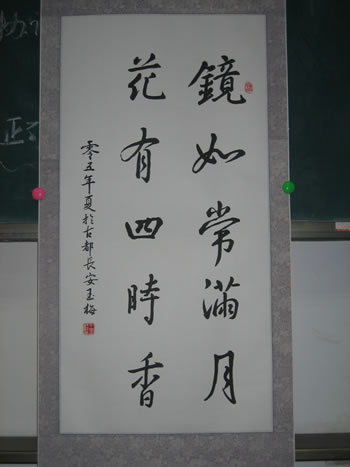 鏡如常滿月
花有四時香
零五年夏於古都長安玉梅